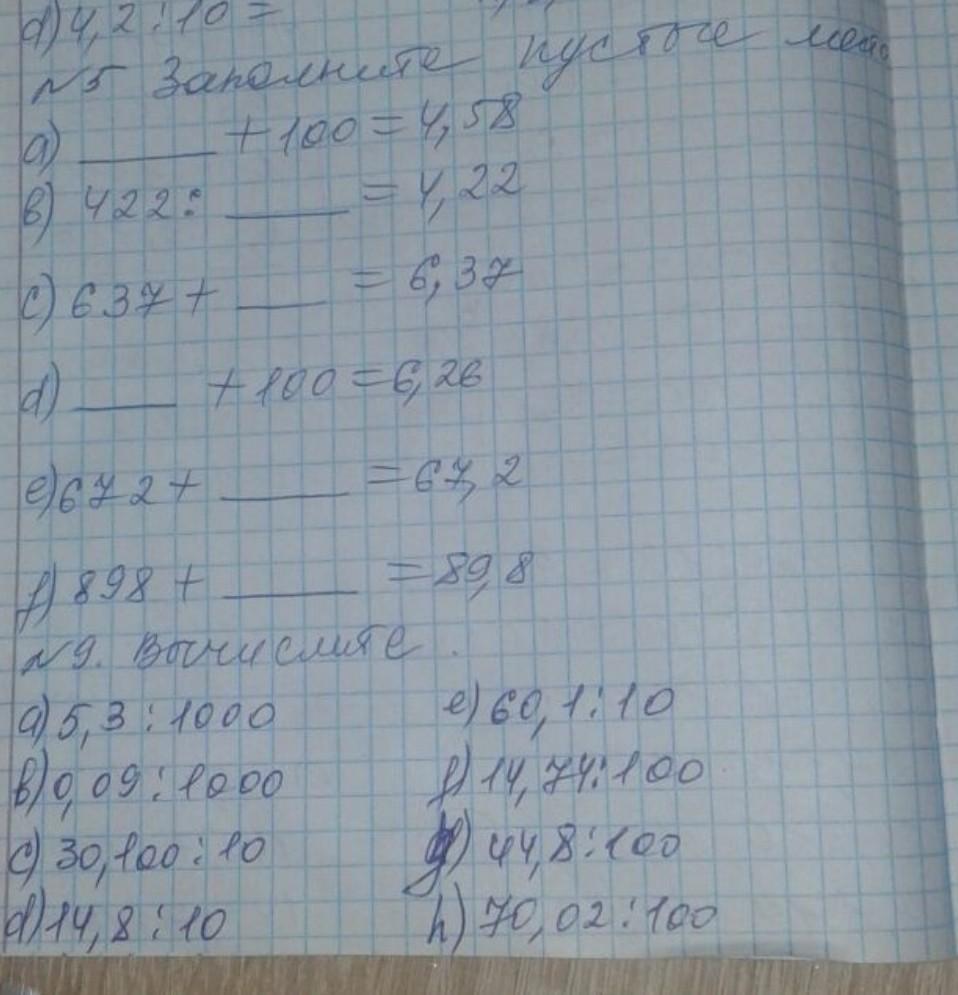 d) 4,2 : 10 =
№5 Заполните пустые места
a) _____ + 100 = 4,58
b) 422 : _____ = 4,22
c) 637 + ____ = 6,37
d) ____ + 100 = 6,26
e) 672 + _____ = 67,2
f) 898 + _____ = 89,8
№9. Вычислите.
a) 5,3 : 1000 e) 60,1 : 10
b) 0,09 : 1000 f) 14,74 : 100
c) 30,100 : 10 g) 44,8 : 100
d) 14,8 : 10 h) 70,02 : 100